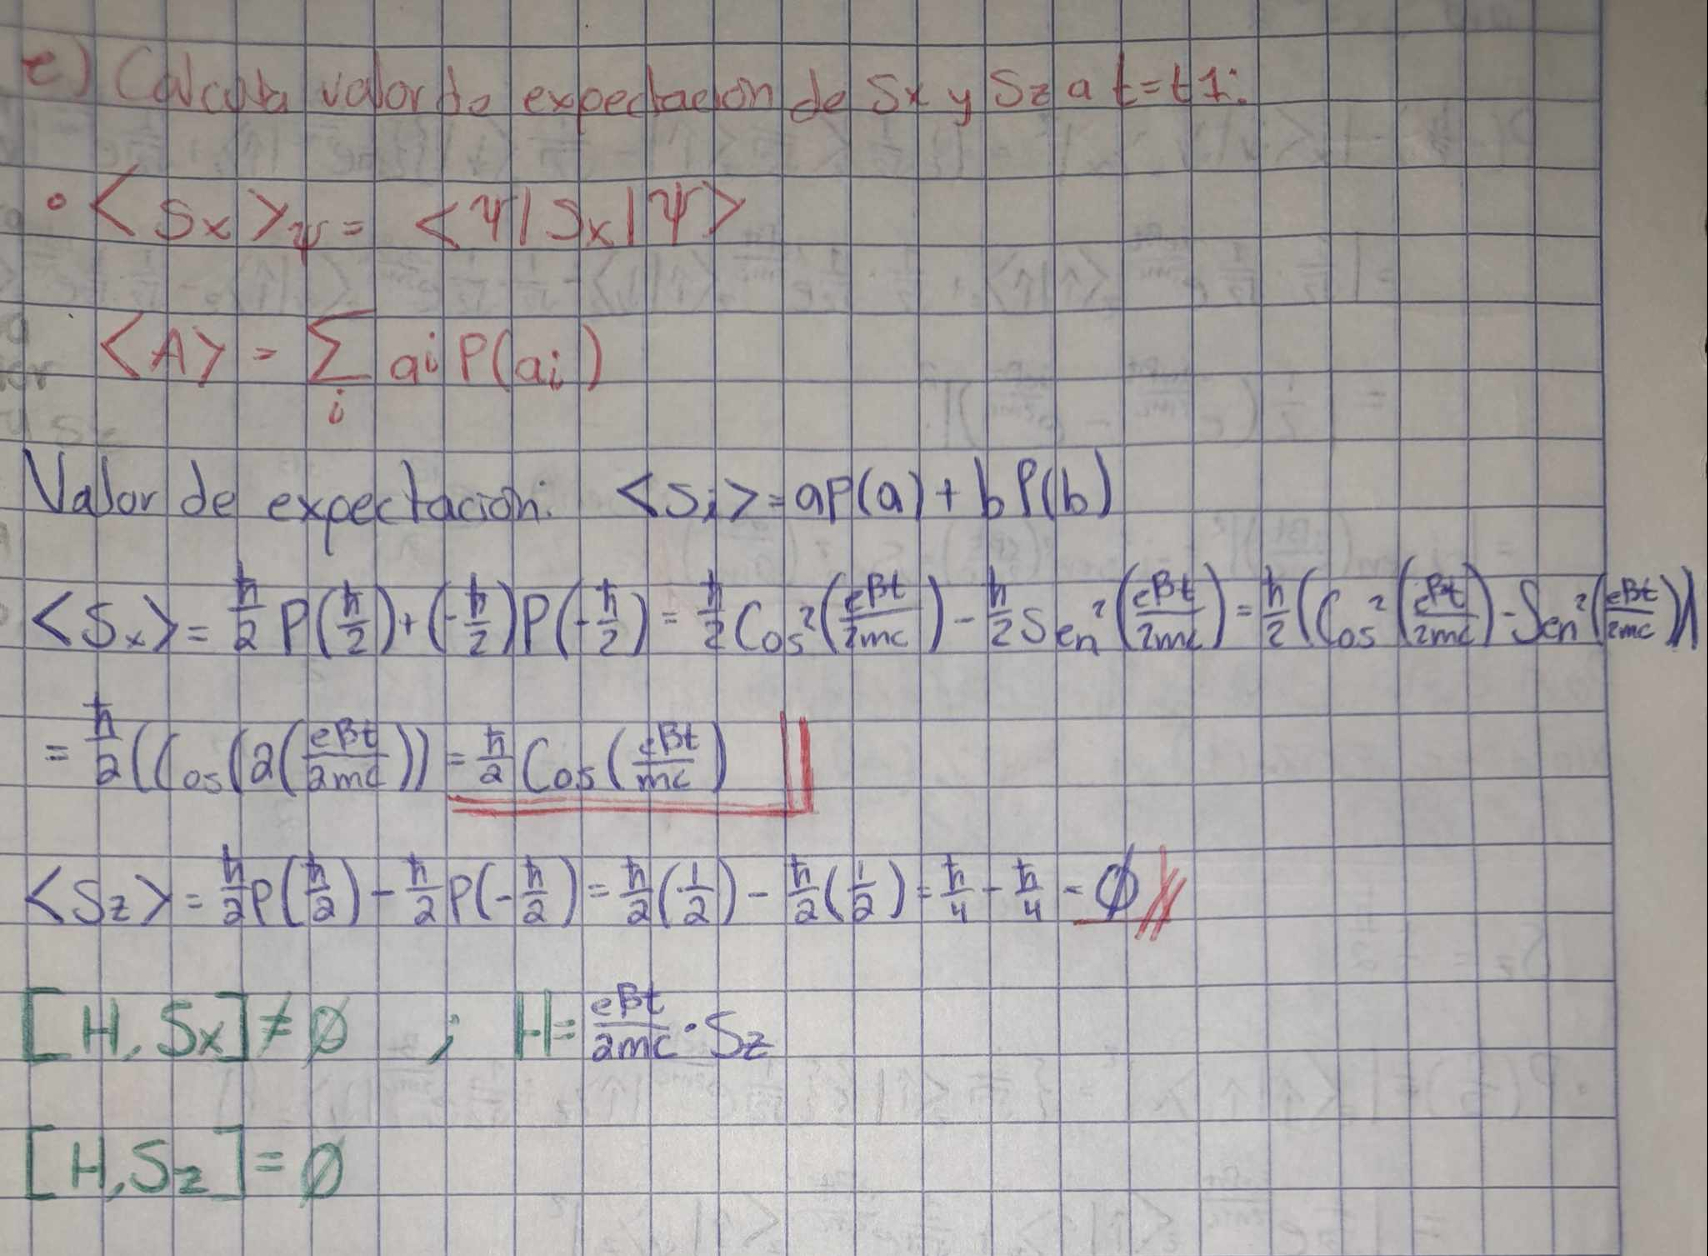 e) Calcula valor de expectación de Sx y Sz a t=t1:
• <Sx>ψ = <ψ|Sx|ψ>
<A> = Σi ai P(ai)
Valor de expectación: <Si> = aP(a) + bP(b)
<Sx> = ħ/2 P(ħ/2) + (-ħ/2)P(-ħ/2) = ħ/2 Cos²(eBt/2mc) - ħ/2 Sen²(eBt/2mc) = ħ/2 (Cos²(eBt/2mc) - Sen²(eBt/2mc))
= ħ/2 (Cos(2(eBt/2mc)) = ħ/2 Cos(eBt/mc)
<Sz> = ħ/2 P(ħ/2) - ħ/2 P(-ħ/2) = ħ/2 (1/2) - ħ/2 (1/2) = ħ/4 - ħ/4 = Ø
[H, Sx] ≠ Ø ; H = eBt/2mc · Sz
[H, Sz] = Ø